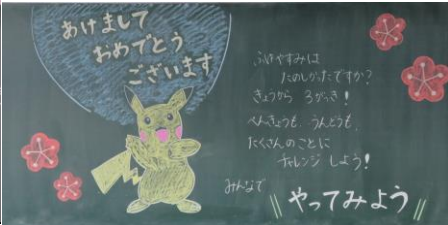 あけまして
おめでとう
ございます
ふゆやすみは
たのしかったですか?
きょうから 3がっき!
べんきょうも、うんどうも、
たくさんのことに
チャレンジ しよう!
みんなで
やってみよう